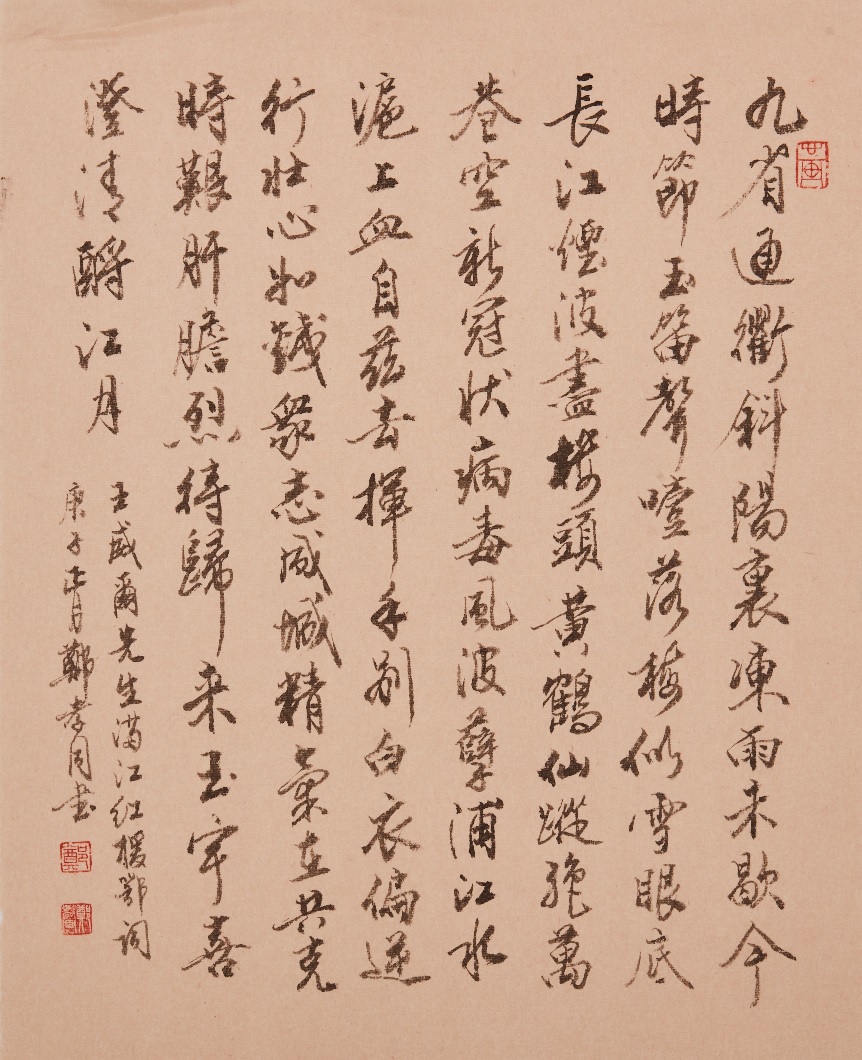 九省通衢斜陽裏凍雨未歇今
時節玉笛聲噎落梅似雪眼底
長江煙波盡樓頭黄鶴仙蹤絶萬
巷空新冠狀病毒風波孽浦江水
滬上血自兹去揮手别白衣偏逆
行壮心如鐵衆志成城精氣在共克
時艱肝膽烈待歸来玉宇喜
澄清酹江月
王威爾先生滿江红援鄂词
庚子正月鄭孝同书